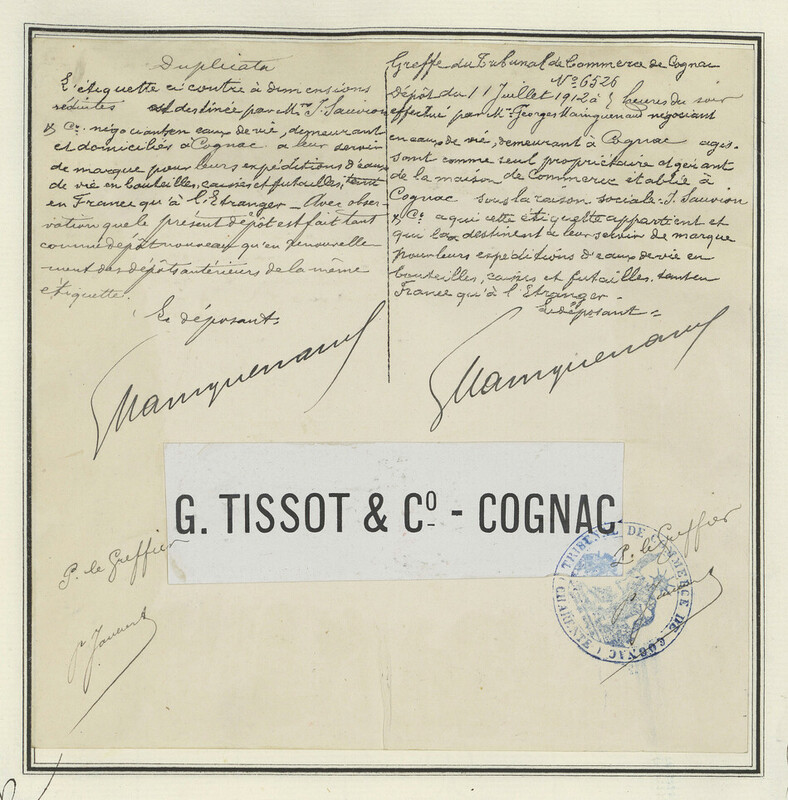 Duplicata
L'étiquette ci contre à dimensions
réduites est destinée par Mr J. Sauvion
& Co. négociants en eaux de vie, demeurant
et domiciliés à Cognac à leur servir
de marque pour leurs expéditions d'eaux
de vie en bouteilles, caisses et futailles, tant
en France qu'à l'Etranger - Avec obser-
vation que le présent dépôt est fait tant
comme dépôt nouveau qu'en renouvelle-
ment des dépôts antérieurs de la même
étiquette.
Le déposant:
GMainguenaud
Greffe du Tribunal de Commerce de Cognac
No 6526
Dépôt du 11 Juillet 1912 à heures du soir
effectué par Mr Georges Mainguenaud négociant
en eaux de vie, demeurant à Cognac agis-
sant comme seul propriétaire et gérant
de la maison de Commerce établie à
Cognac sous la raison sociale: J. Sauvion
& Co. à qui cette étiquette appartient et
qui la destinent à leur servir de marque
pour leurs expéditions d'eaux de vie en
bouteilles, caisses et futailles, tant en
France qu'à l'Etranger -
Le déposant =
GMainguenaud
G. TISSOT & Co - COGNAC
P. le Greffier
P. le Greffier
TRIBUNAL DE COMMERCE DE COGNAC (CHARENTE)